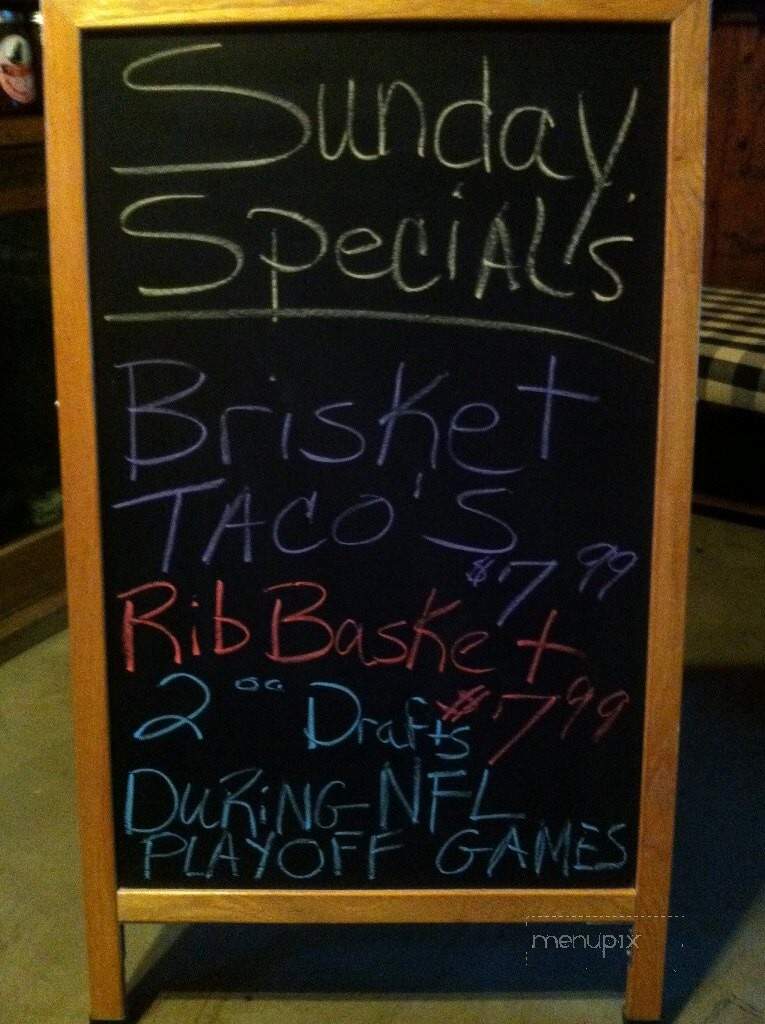 Sunday
Special's
Brisket
TACO'S
$7 99
Rib Basket
$7 99
2 00 Drafts
DURiNG NFL
PLAYOFF GAMES
menupix